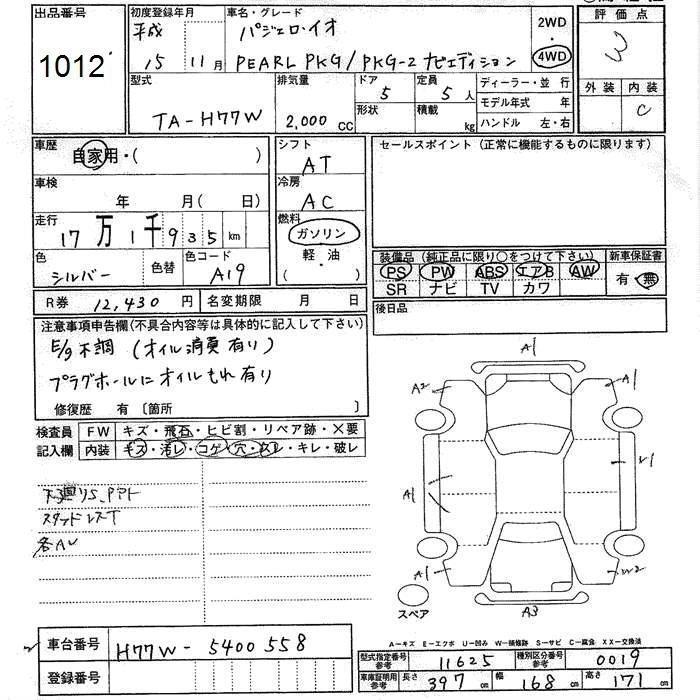 出品番号
1012
初度登録年月
平成
15 11月
車名・グレード
パジェロ・イオ
PEARL PKG/PKG-2 ナビエディション
2WD
・
4WD
評価点
3
外装 内装
C
型式
TA-H77W
排気量
2,000 CC
ドア
5
形状
定員
5 人
積載
kg
ディーラー・並 行
モデル年式 年
ハンドル 左・右
車歴
自家用・( )
車検
年 月( 日)
走行
17万1千935km
色
シルバー
色替
色コード
A19
シフト
AT
冷房
AC
燃料
ガソリン
軽・油
( )
セールスポイント(正常に機能するものに限ります)
装備品(純正品に限り○をつけて下さい)
PS PW ABS エアB AW
SR ナビ TV カワ
新車保証書
有・無
R券 12,430 円 名変期限 月 日
後日品
注意事項申告欄(不具合内容等は具体的に記入して下さい)
E/g不調 (オイル消費有り)
プラグホールにオイルもれ有り
修復歴 有〔箇所 〕
検査員
記入欄
FW キズ・飛石・ヒビ割・リペア跡・×要
内装 キズ・汚レ・コゲ・穴・スレ・キレ・破レ
下廻りS、Pアト
スタッドレスT
各AU
A1
A2
A1
A1
A1
A1
W2
A3
スペア
A―キズ E―エクボ U―凹み W―補修跡 S―サビ C―腐食 XX―交換済
車台番号 H77W-5400558
登録番号
型式指定番号
参考
11625
種別区分番号
参考
0019
車庫証明用
参考
長さ 397 cm 幅 168 cm 高さ 171 cm